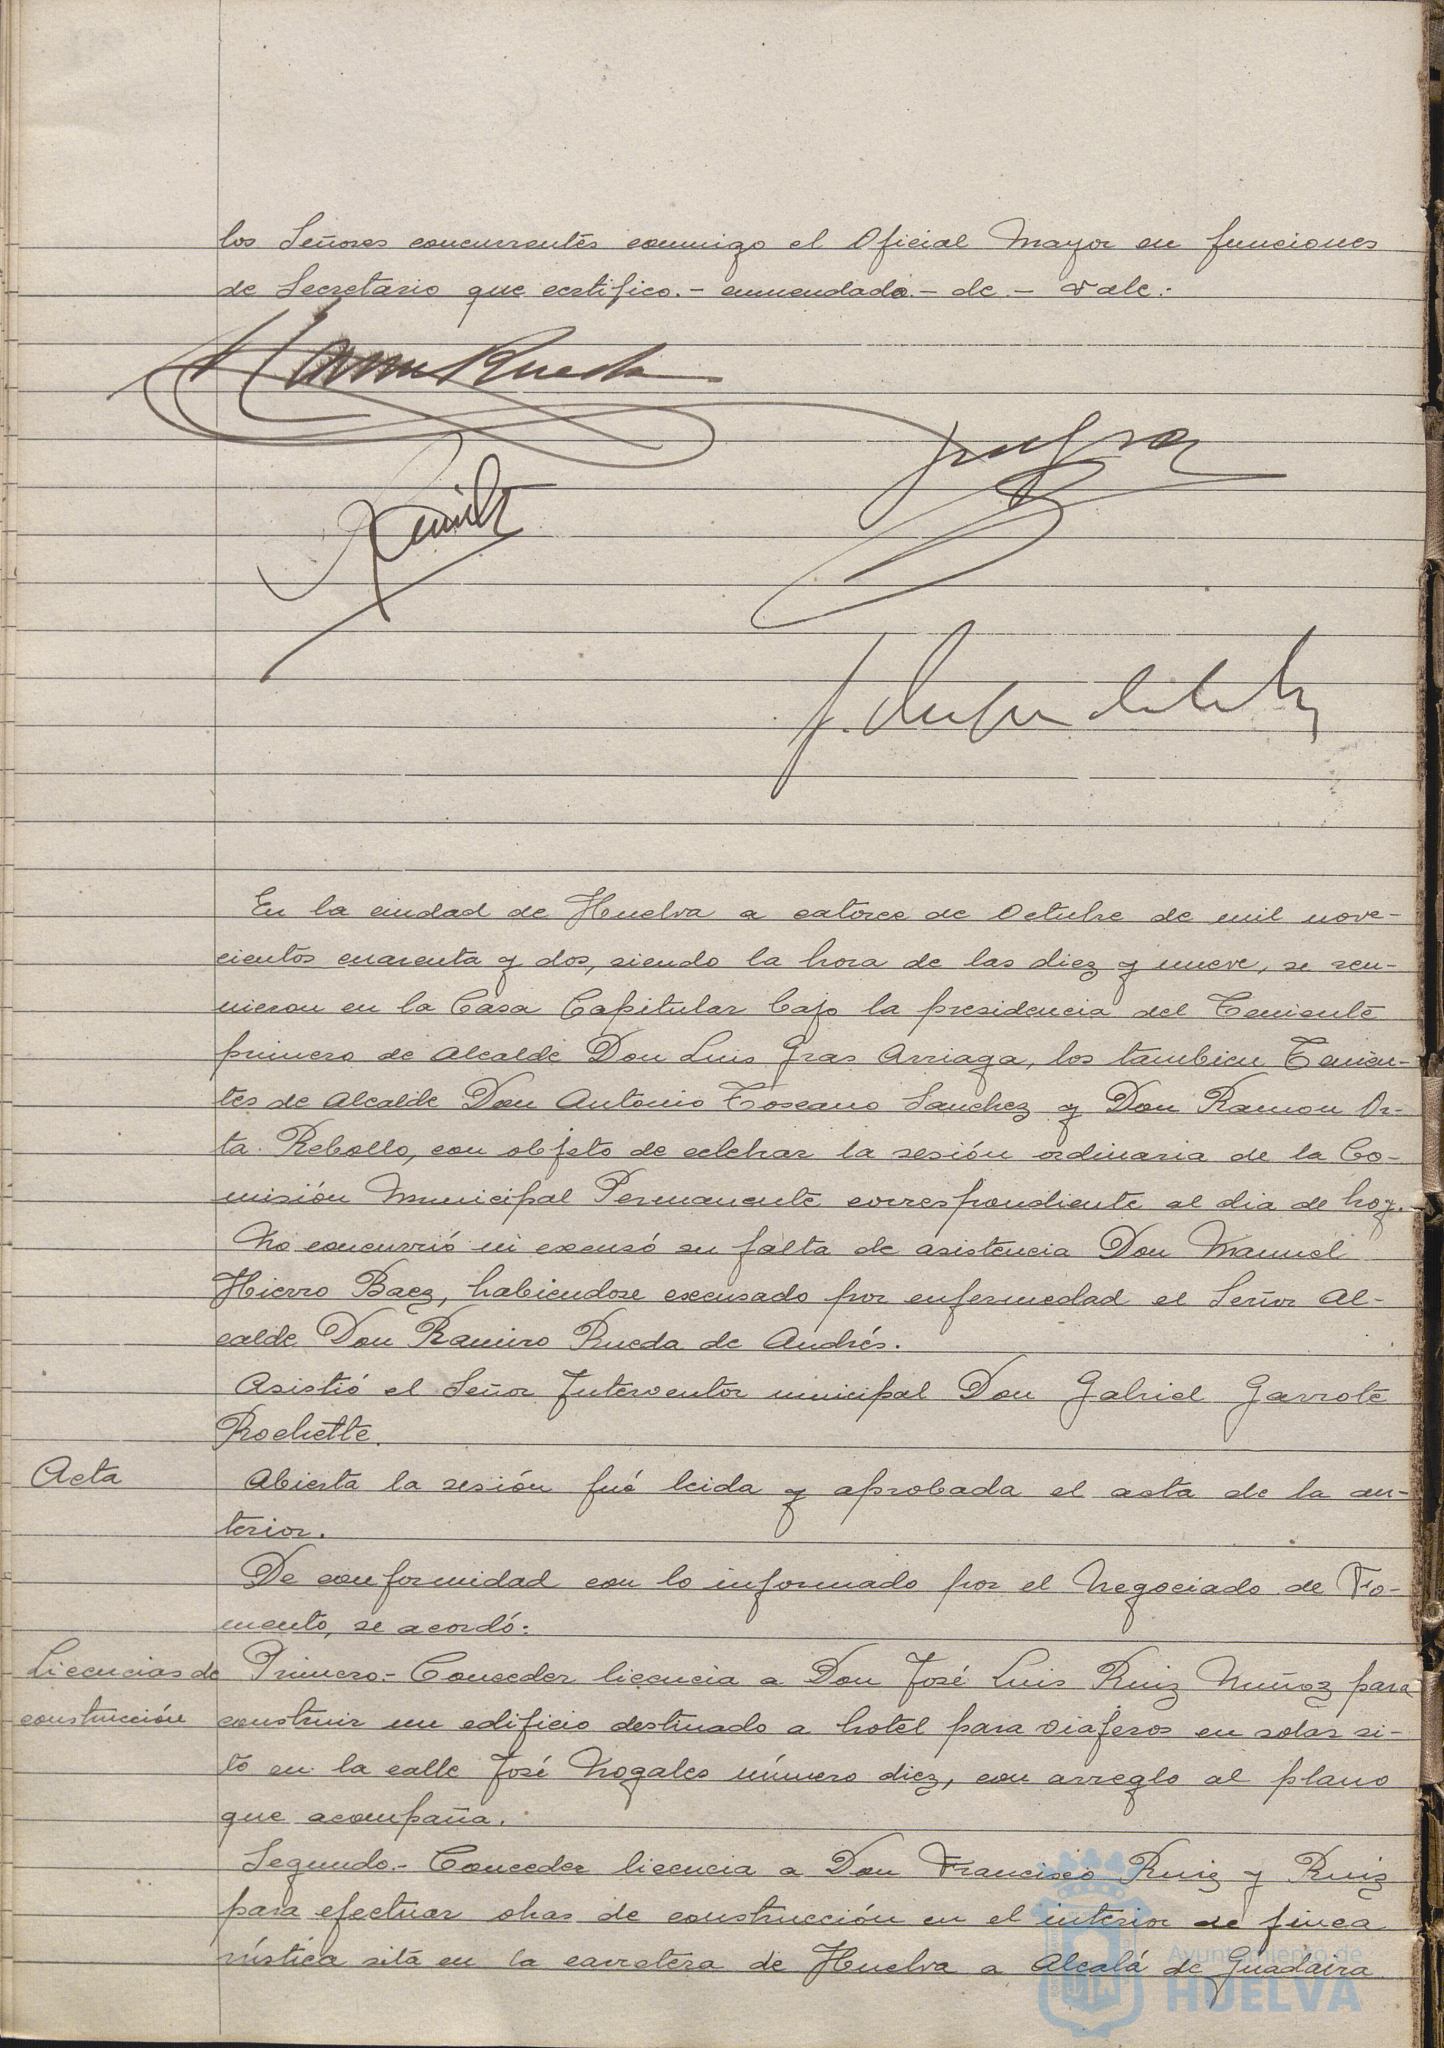 los Señores concurrentes conmigo el Oficial Mayor en funciones
de Secretario que certifico.- enmendado.- de.- vale.-
En la ciudad de Huelva a catorce de Octubre de mil nove-
cientos cuarenta y dos, siendo la hora de las diez y nueve, se reu-
nieron en la Casa Capitular bajo la presidencia del Teniente
primero de Alcalde Don Luis Gras Arriaga, los tambien Tenien-
tes de Alcalde Don Antonio Toscano Sanchez y Don Ramon Or-
ta Rebollo, con objeto de celebrar la sesión ordinaria de la Co-
misión Municipal Permanente correspondiente al dia de hoy.
No concurrió ni excusó su falta de asistencia Don Manuel
Hierro Baez, habiendose excusado por enfermedad el Señor Al-
calde Don Ramiro Rueda de Andrés.
Asistió el Señor Interventor municipal Don Gabriel Garrote
Rochette.
Acta
Abierta la sesión fué leida y aprobada el acta de la an-
terior.
De conformidad con lo informado por el Negociado de Fo-
mento, se acordó:
Licencias de
construcción
Primero.- Conceder licencia a Don José Luis Ruiz Muñoz para
construir un edificio destinado a hotel para viajeros en solar si-
to en la calle José Nogales número diez, con arreglo al plano
que acompaña.
Segundo.- Conceder licencia a Don Francisco Ruiz y Ruiz
para efectuar obras de construcción en el interior de finca
rústica sitá en la carretera de Huelva a Alcalá de Guadaira
Ayuntamiento de
HUELVA